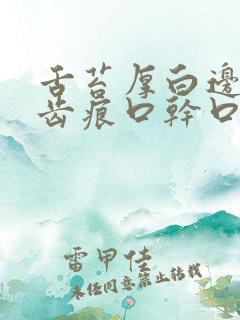 舌苔厚白邊
齿痕口幹口
雷甲佳
未经同意禁止转载